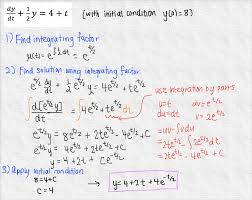 dy/dt + 1/2 y = 4 + t (with initial condition y(0)=8)
1) Find integrating factor
μ(t) = e^∫1/2 dt = e^t/2
2) Find solution using integrating factor
e^t/2 dy/dt + 1/2 e^t/2 y = 4e^t/2 + te^t/2
∫ d[e^t/2 y]/dt = ∫ 4e^t/2 + te^t/2
e^t/2 y = 8e^t/2 + 2te^t/2 - 4e^t/2 + C
e^t/2 y = 4e^t/2 + 2te^t/2 + C
y = 4 + 2t + C/e^t/2
use integration by parts
u=t dv=e^t/2
du=dt v=2e^t/2
=uv-∫vdu
=2te^t/2 - ∫2e^t/2 dt
=2te^t/2 - 4e^t/2 + C
3) Apply initial condition
8=4+C
C=4
→ y=4+2t+4e^-t/2